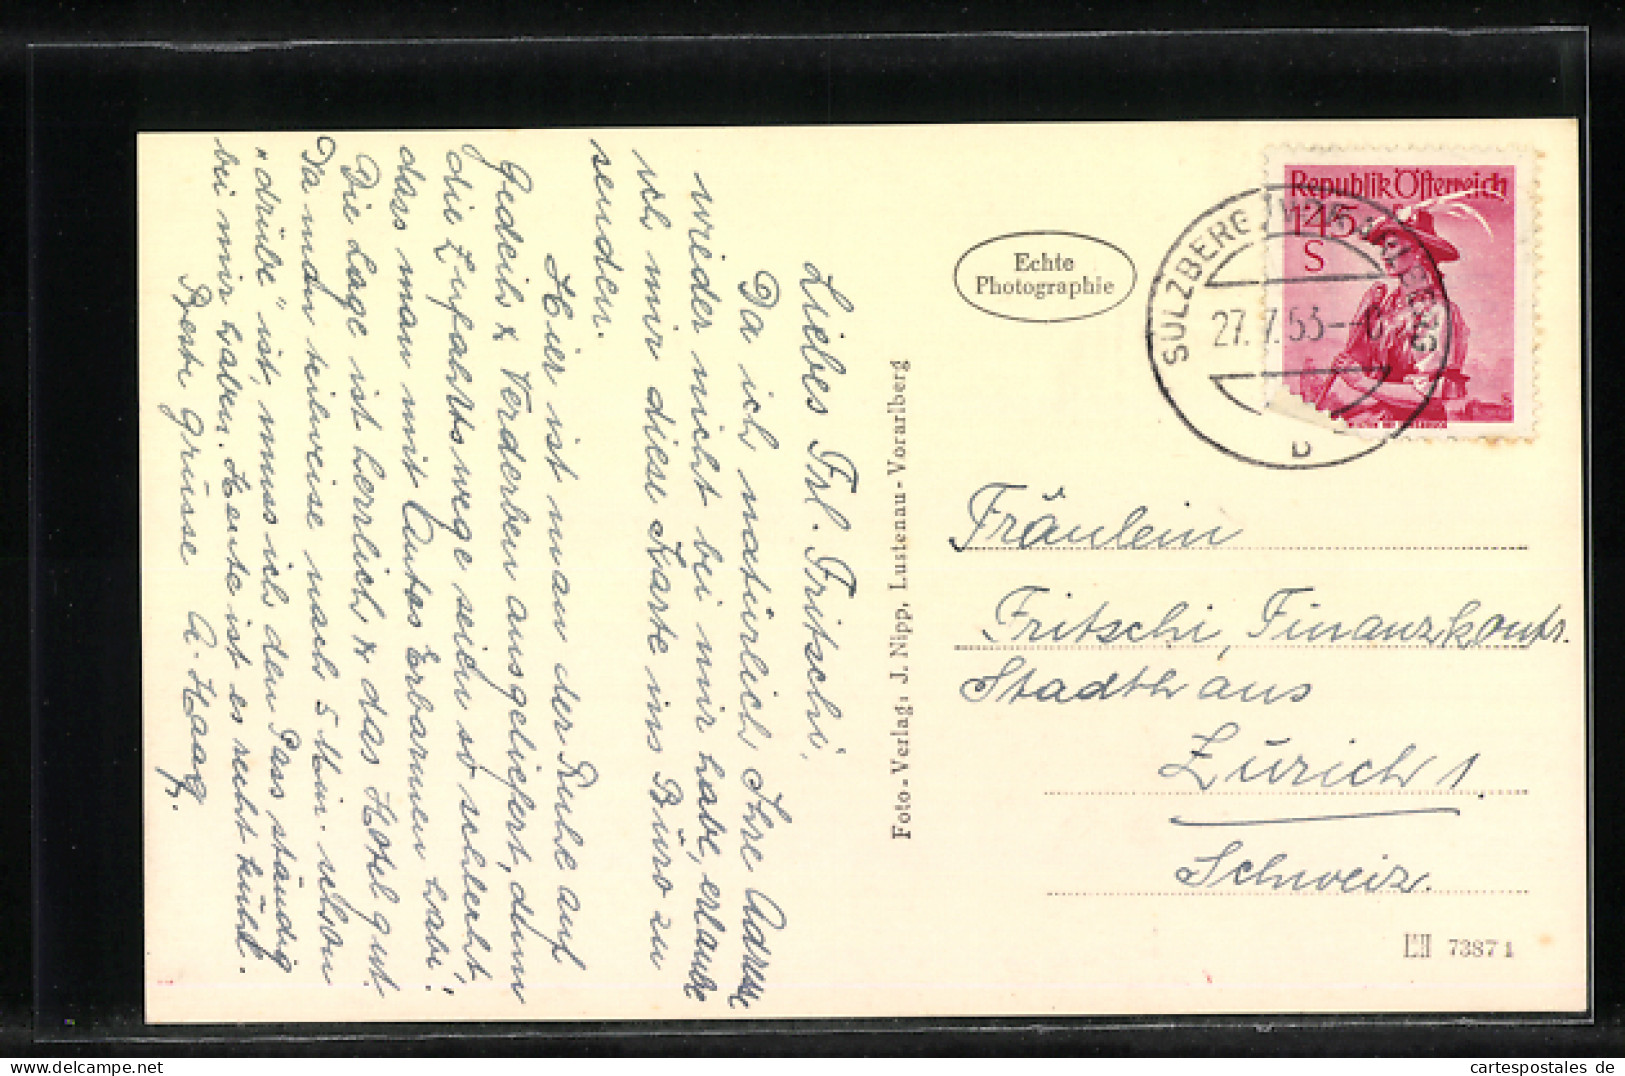 Liebes Frl. Fritschi,
Da ich natürlich Ihre Adresse
wieder nicht bei mir habe, erlaube
ich mir diese Karte ins Büro zu
senden.
Hier ist man der Ruhe auf
Gedeih & Verderben ausgeliefert, denn
die Zufahrtswege seien so schlecht,
dass man mit Autos Erbarmen habe!
Die Lage ist herrlich & das Hotel gut.
Da man teilweise nach 5 Min. schon
"drübe" ist, muss ich den Pass ständig
bei mir haben. Heute ist es recht kühl.
Beste Grüsse A. Haag.
Foto-Verlag: J. Nipp, Lustenau-Vorarlberg
Echte
Photographie
Republik Österreich
1·45
S
SULZBERG / VORARLBERG
27. 7. 53
b
Fräulein
Fritschi, Finanzkontr.
Stadthaus
Zürich 1.
Schweiz.
7387 1
www.cartespostales.de